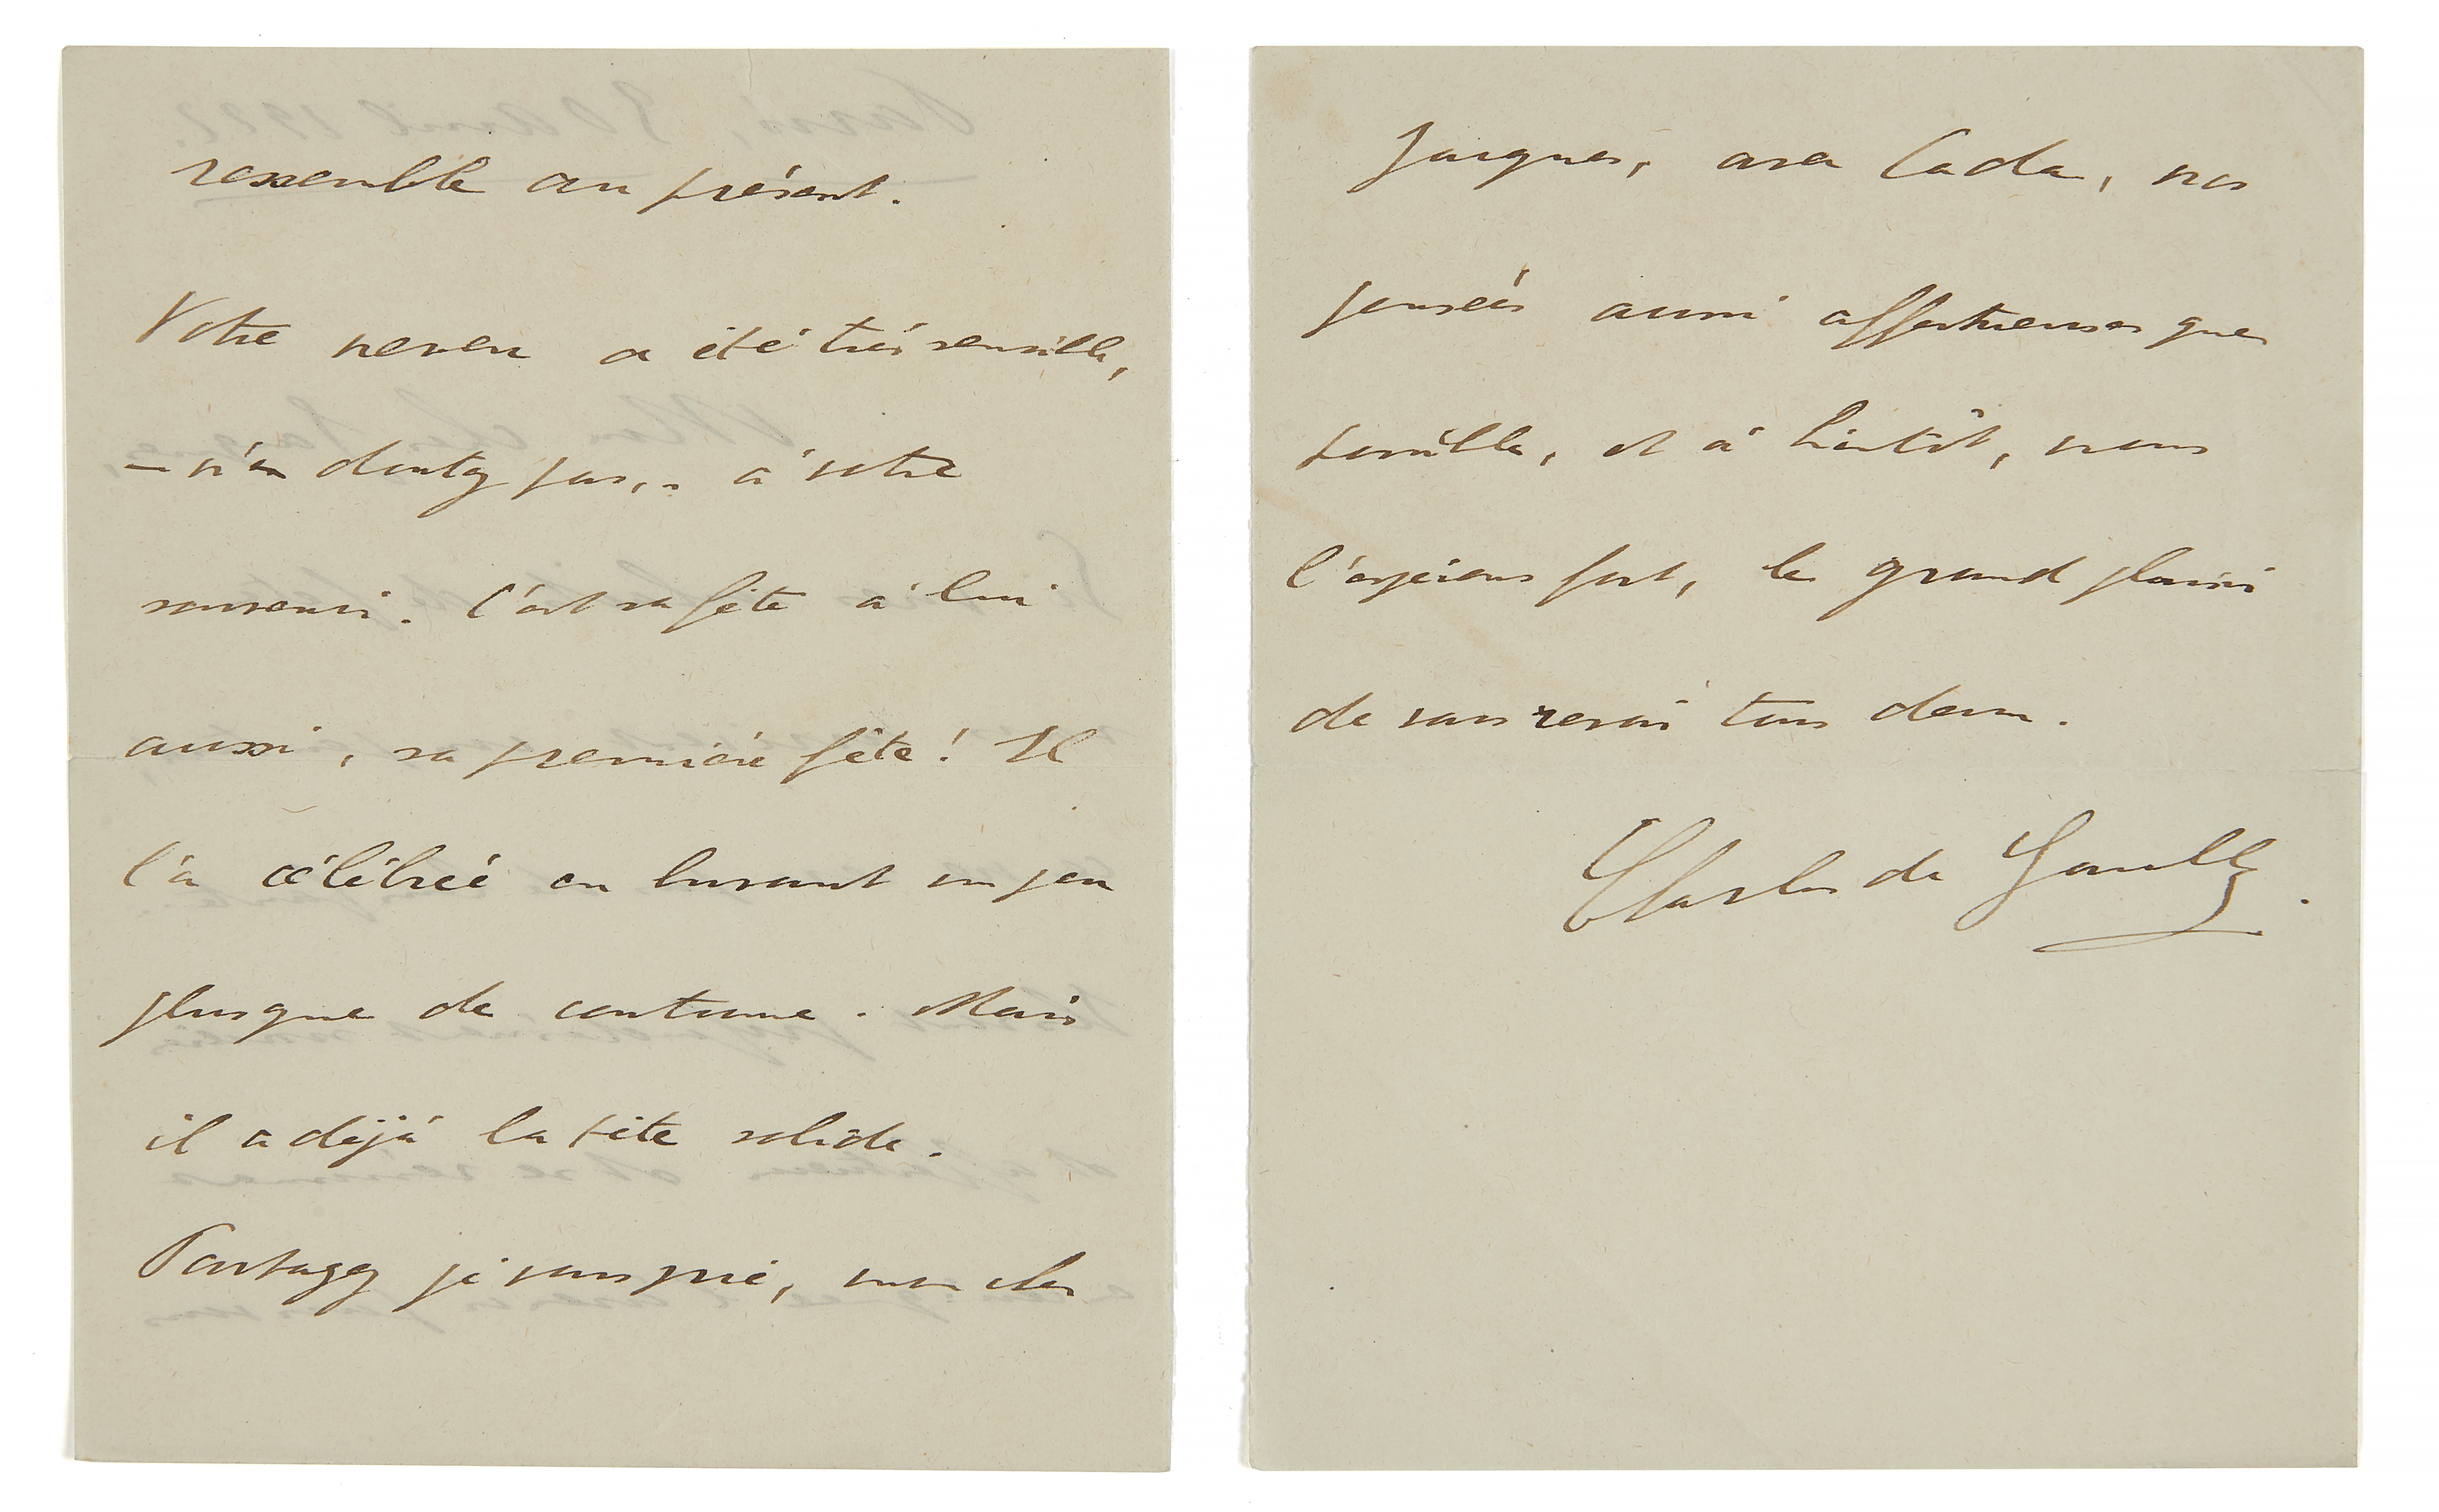 ressemble au présent.
Votre neveu a été très sensible,
– n'en doutez pas, – à votre
souvenir. C'est sa fête à lui
aussi, sa première fête ! Il
l'a célébrée en buvant un peu
plus que de coutume. Mais
il a déjà la tête solide.
Partagez je vous prie, mon cher
Jacques, avec Cada, nos
pensées aussi affectueuses que
possible, et à bientôt, nous
l'espérons fort, le grand plaisir
de vous revoir tous deux.
Charles de Gaulle.